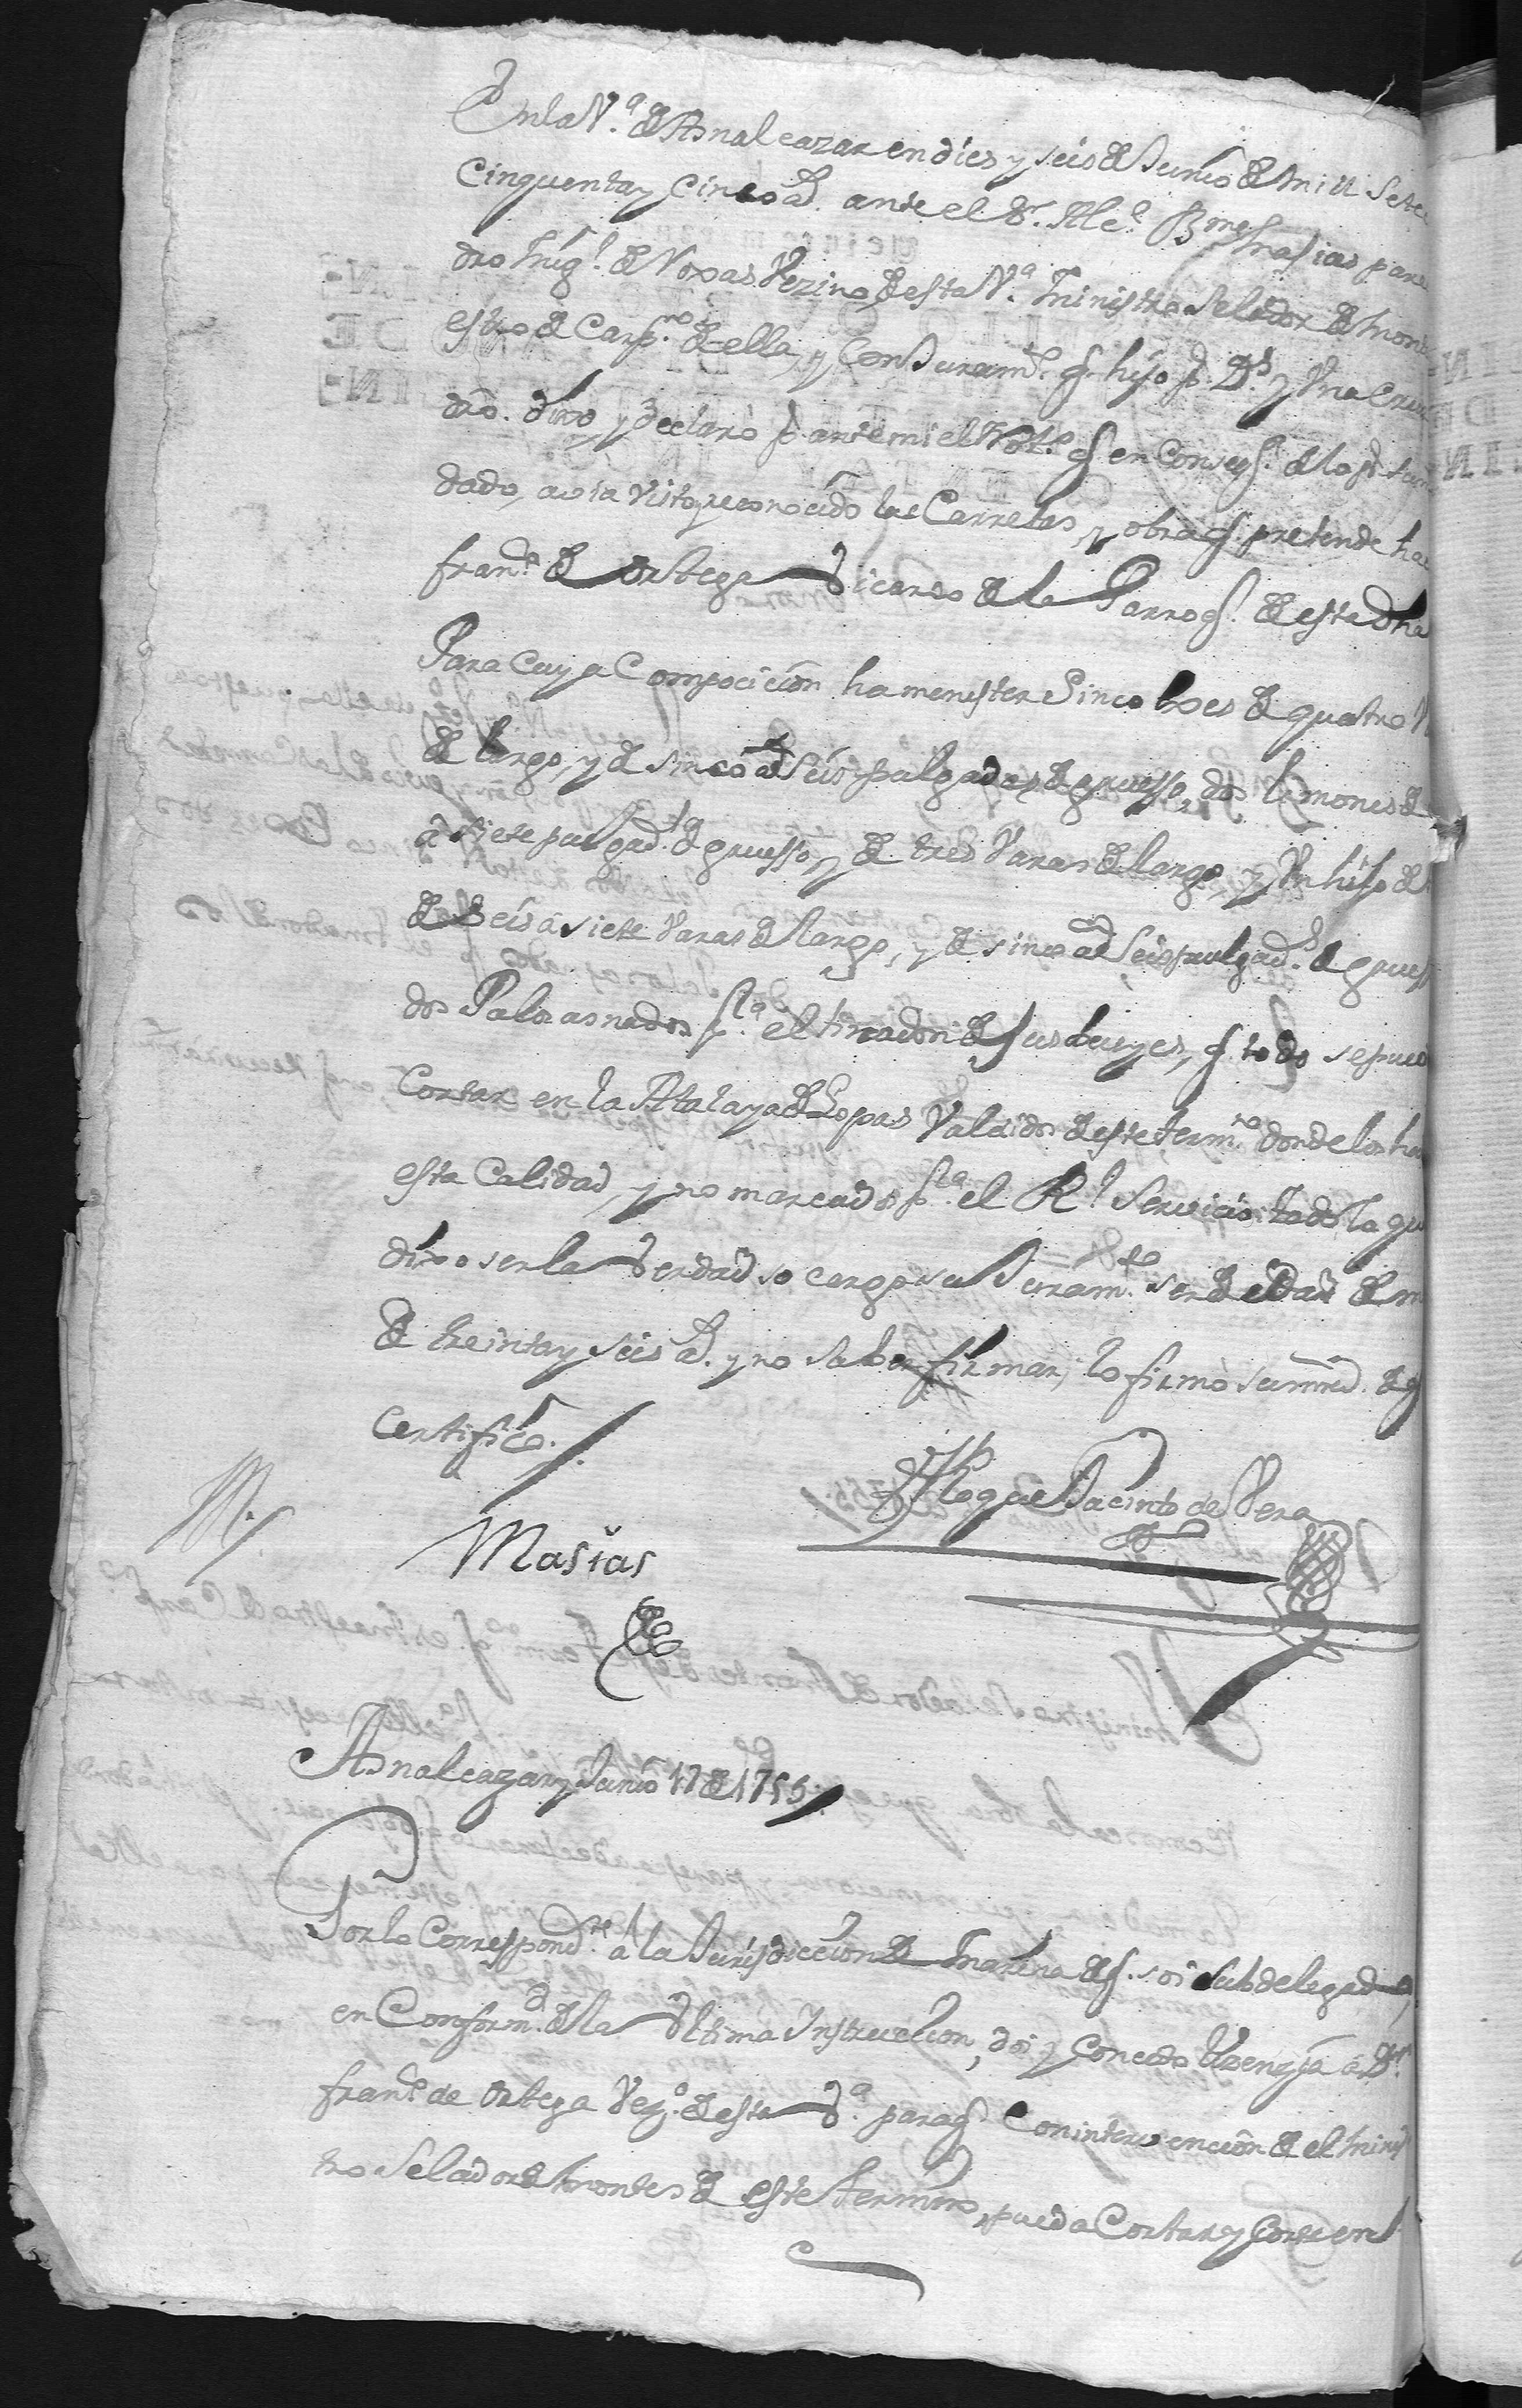 En la V.ª de Asnalcazar en dies y seis de Junio de mill sete
Cinquenta y Cinco a.s ante el Sr. Alc.e B.me Masias pare
dro Mig.l de Roxas Vezino de esta V.ª Ministro Selador de mon
estro de Carp.ro de ella, y Con Juram.to q. hiso p.r D.s y Vna Cru
dro. dixo y declaró p.r ante mi el Not.o q. en Conseq.a de lo q.
dado, avia visto, y reconocido las Carretas, y obra q. pretende ha
fran.co de Ortega Vicario de la Parroq.l de esta dha
Para Cuya Composicion ha menester Sinco Exes de quatro V
de largo, y de sinco a Seis pulgadas de gruesso, dos limones de
á siete pulgad.s de gruesso, y de tres Varas de largo, y Vn hijo de
de Seis á siete Varas de largo, y de sinco a Seis pulgad.s de grues
dos Palos asnados p.ª el tirador de sus bueyes, q. todo se pue
Cortar en la Atalaya de Lopas Valdios de este term.no donde los ha
esta Calidad, y no marcados p.ª el R.l Servicio: todo lo qu
dixo ser la Verdad so cargo su Juram.to ser de edad de m
de treinta y Seis a.s y no saber firmar, lo firmó su mrd. de q
Certifico.
M.
Masias
Roque Jacinto de Vera
Asnalcazar y Junio 17 de 1755.
Por lo Correspond.te á la Jurisdiccion de Marina de q. soi Subdelegado
en Conform.d de la Vltima Instruccion, doi y Concedo lizenzia a D.n
fran.co de Ortega Vez.o de esta V.ª para q. Con intervencion de el Minis
tro Selador de Montes de este termino, pueda Cortar, y Corte en l